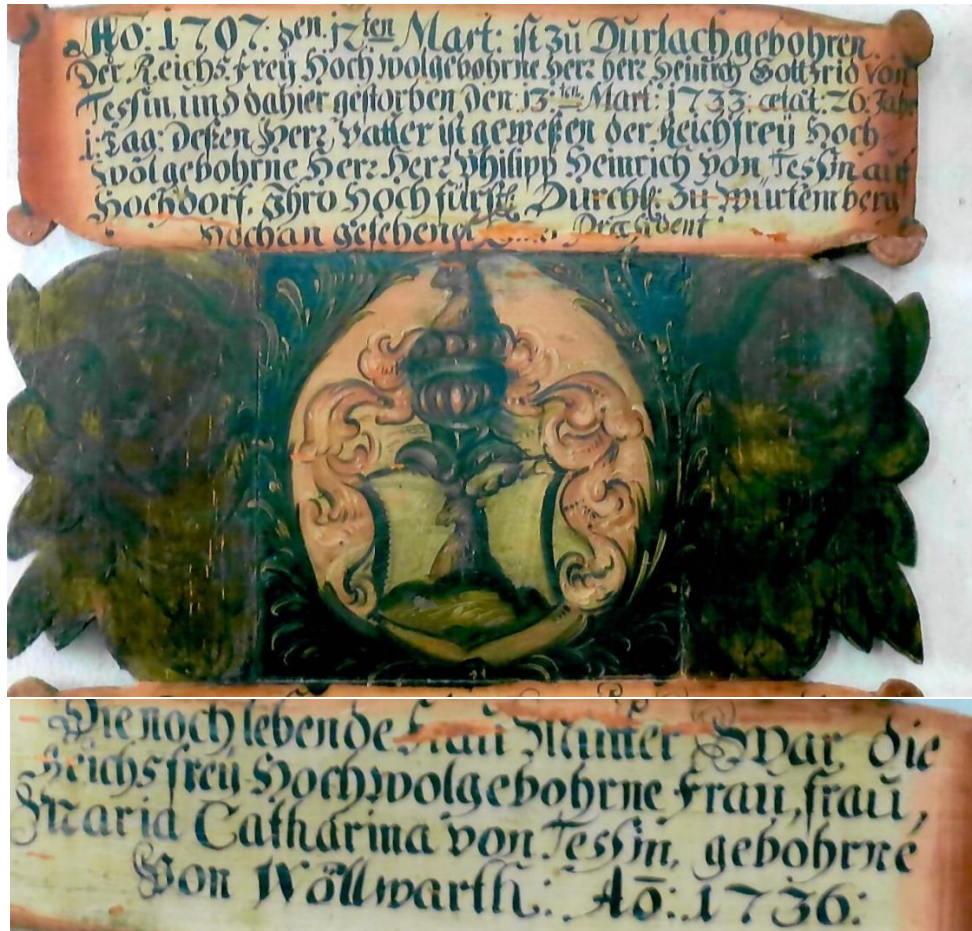 Aō: 1707: den 12ten Mart: ist zu Durlach gebohren
Der Reichs frey Hoch wolgebohrne Herr herr Heinrich Gottfrid von
Tessin, und dahier gestorben den 13ten Mart: 1733 ætat: 26: Jahr
1: Tag: Deßen Herr Vatter ist geweßen der Reichsfrey Hoch
wolgebohrne Herr Herr Philipp Heinrich von Tessin auf
Hochdorf, Ihro Hoch fürstl: Durchl: zu Würtemberg
Hochan gesehener Præsident
Die noch lebende Frau Mutter War, die
Reichs frey Hochwolgebohrne Frau, frau,
Maria Catharina von Tessin, gebohrne
Von Wöllwarth: Aō: 1736: